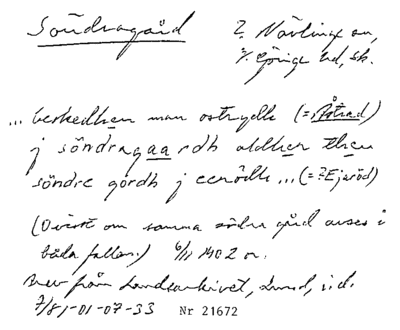 Söndragård ? Nävlinge sn,
V. Göinge hd, Sk.
... beskedhen man ostrydh (= ? Åstrad)
j söndragaardh aldhen then
söndre gördh j eerödh ... (= ? Ejaröd)
(Ovisst om samma södra gård avses i
båda fallen.) 6/11 1402 or.
Brev från Landsarkivet, Lund, i d.
7/81-01-07-33 Nr 21672